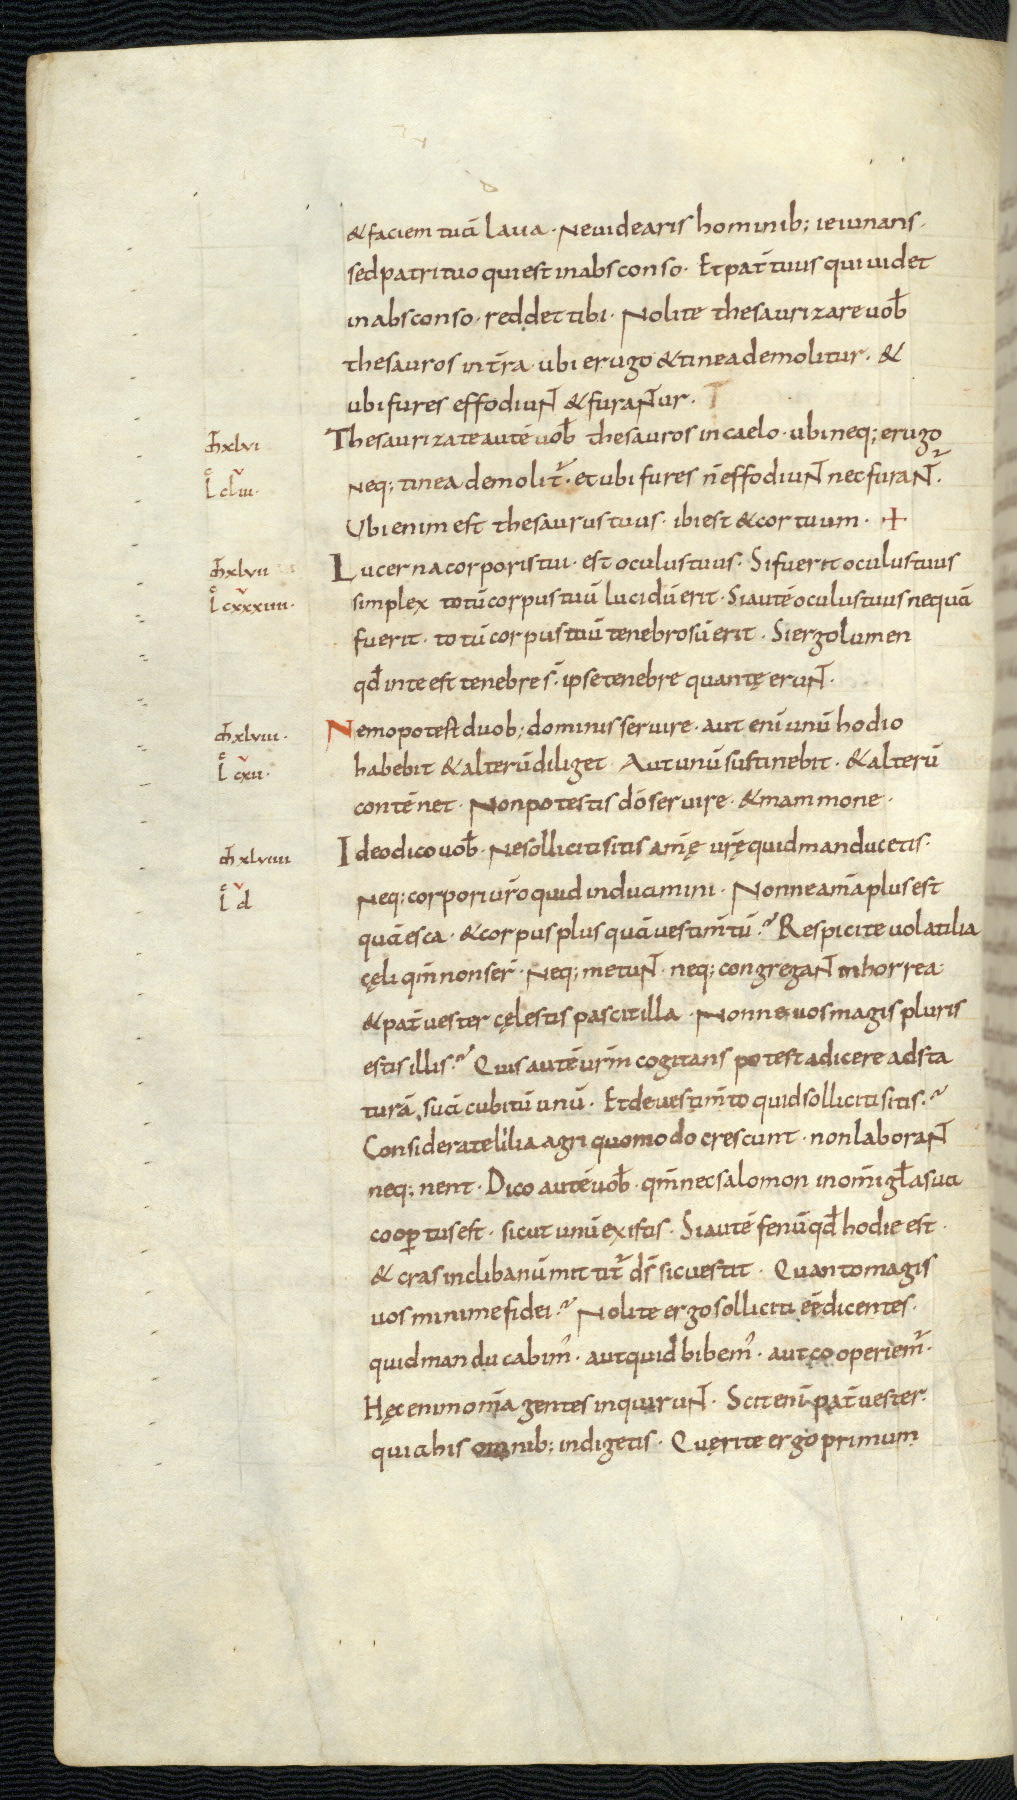 & faciem tuā laua · Ne uidearis hominib; ieiunans ·
sed patri tuo qui est in absconso · Et pat̄ tuus qui uidet
in absconso · reddet tibi · Nolite thesaurizare uob̄
thesauros in t̄ra · ubi erugo & tinea demolitur · &
ubi fures effodiuN̄ & furaN̄ur · T
m̄ xlvi
Thesaurizate autē uob̄ thesauros in caelo · ubi neq; erugo
L clui ·
neq; tinea demolit̄ · et ubi fures n̄ effodiuN̄ nec furaN̄ ·
Ubi enim est thesaurus tuus · ibi est & cor tuum · +
m̄ xlvii
Lucerna corporis tui · est oculus tuus · Si fuerit oculus tuus
L cxxxiiii ·
simplex totū corpus tuū lucidū erit · Si autē oculus tuus nequā
fuerit · totū corpus tuū tenebrosū erit · Si ergo lumen
qđ in te est tenebre s̄ · ipse tenebre quantę eruN̄ ·
m̄ xlviii ·
Nemo potest duob; dominis seruire · aut enī unū hodio
L cxii ·
habebit & alterū diliget · Aut unū sustinebit · & alterū
contēnet · Non potestis dō seruire · & mammone ·
m̄ xlviiii
Ideo dico uob̄ · Ne solliciti sitis animę ur̄ę quid manducetis ·
L d
Neq; corpori ur̄o quid induamini · Nonne anīa plus est
quā esca · & corpus plus quā uestim̄tū · Respicite uolatilia
cęli qm̄ non ser̄ · Neq; metuN̄ · neq; congregaN̄ in horrea ·
& pat̄ uester cęlestis pascit illa · Nonne uos magis pluris
estis illis · Quis autē ur̄m cogitans potest adicere ad sta
turā suā cubitū unū · Et de uestim̄to quid solliciti sitis ·
Considerate lilia agri quomodo crescunt · non laboraN̄
neq; nent · Dico autē uob̄ · qm̄ nec salomon in om̄i gl̄a sua
coop̄tus est · sicut unū ex istis · Si autē fenū qđ hodie est ·
& cras in clibanū mittit̄ d̄s sic uestit · Quanto magis
uos minime fidei · Nolite ergo solliciti eē dicentes ·
quid manducabim̓ · aut quid bibem̓ · aut co operiem̄ ·
Hęc enim om̄ia gentes inquiruN̄ · Scit enī pat̄ uester ·
quia his omnib; indigetis · Quęrite ergo primum